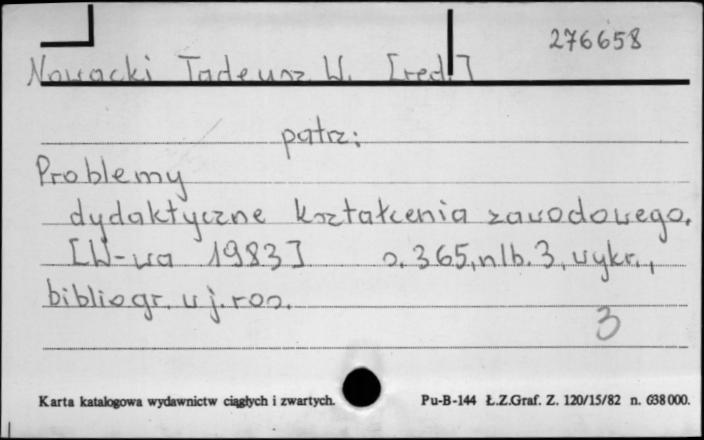 276658
Nowacki Tadeusz W. [red.]
patrz:
Problemy
dydaktyczne kształcenia zawodowego.
[W-wa 1983] s. 365, nlb. 3, wykr.,
bibliogr. w j. ros.
3
Karta katalogowa wydawnictw ciągłych i zwartych. Pu-B-144 Ł.Z.Graf. Z. 120/15/82 n. 638 000.